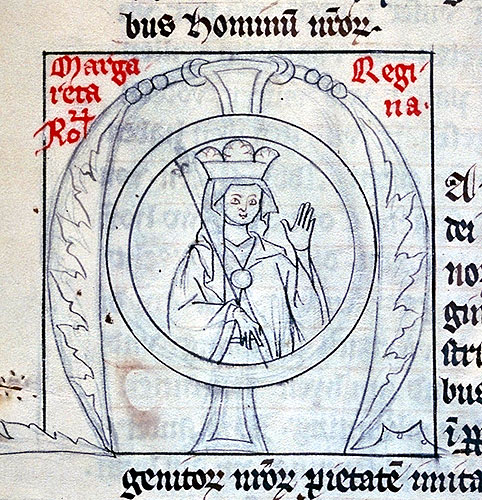 bus hominū nr̄oꝝ.
Marga
reta
Ro
Regi
na.
A
dei
nor
gin
stri
bus
genitoꝝ nr̄oꝝ pietatē imita